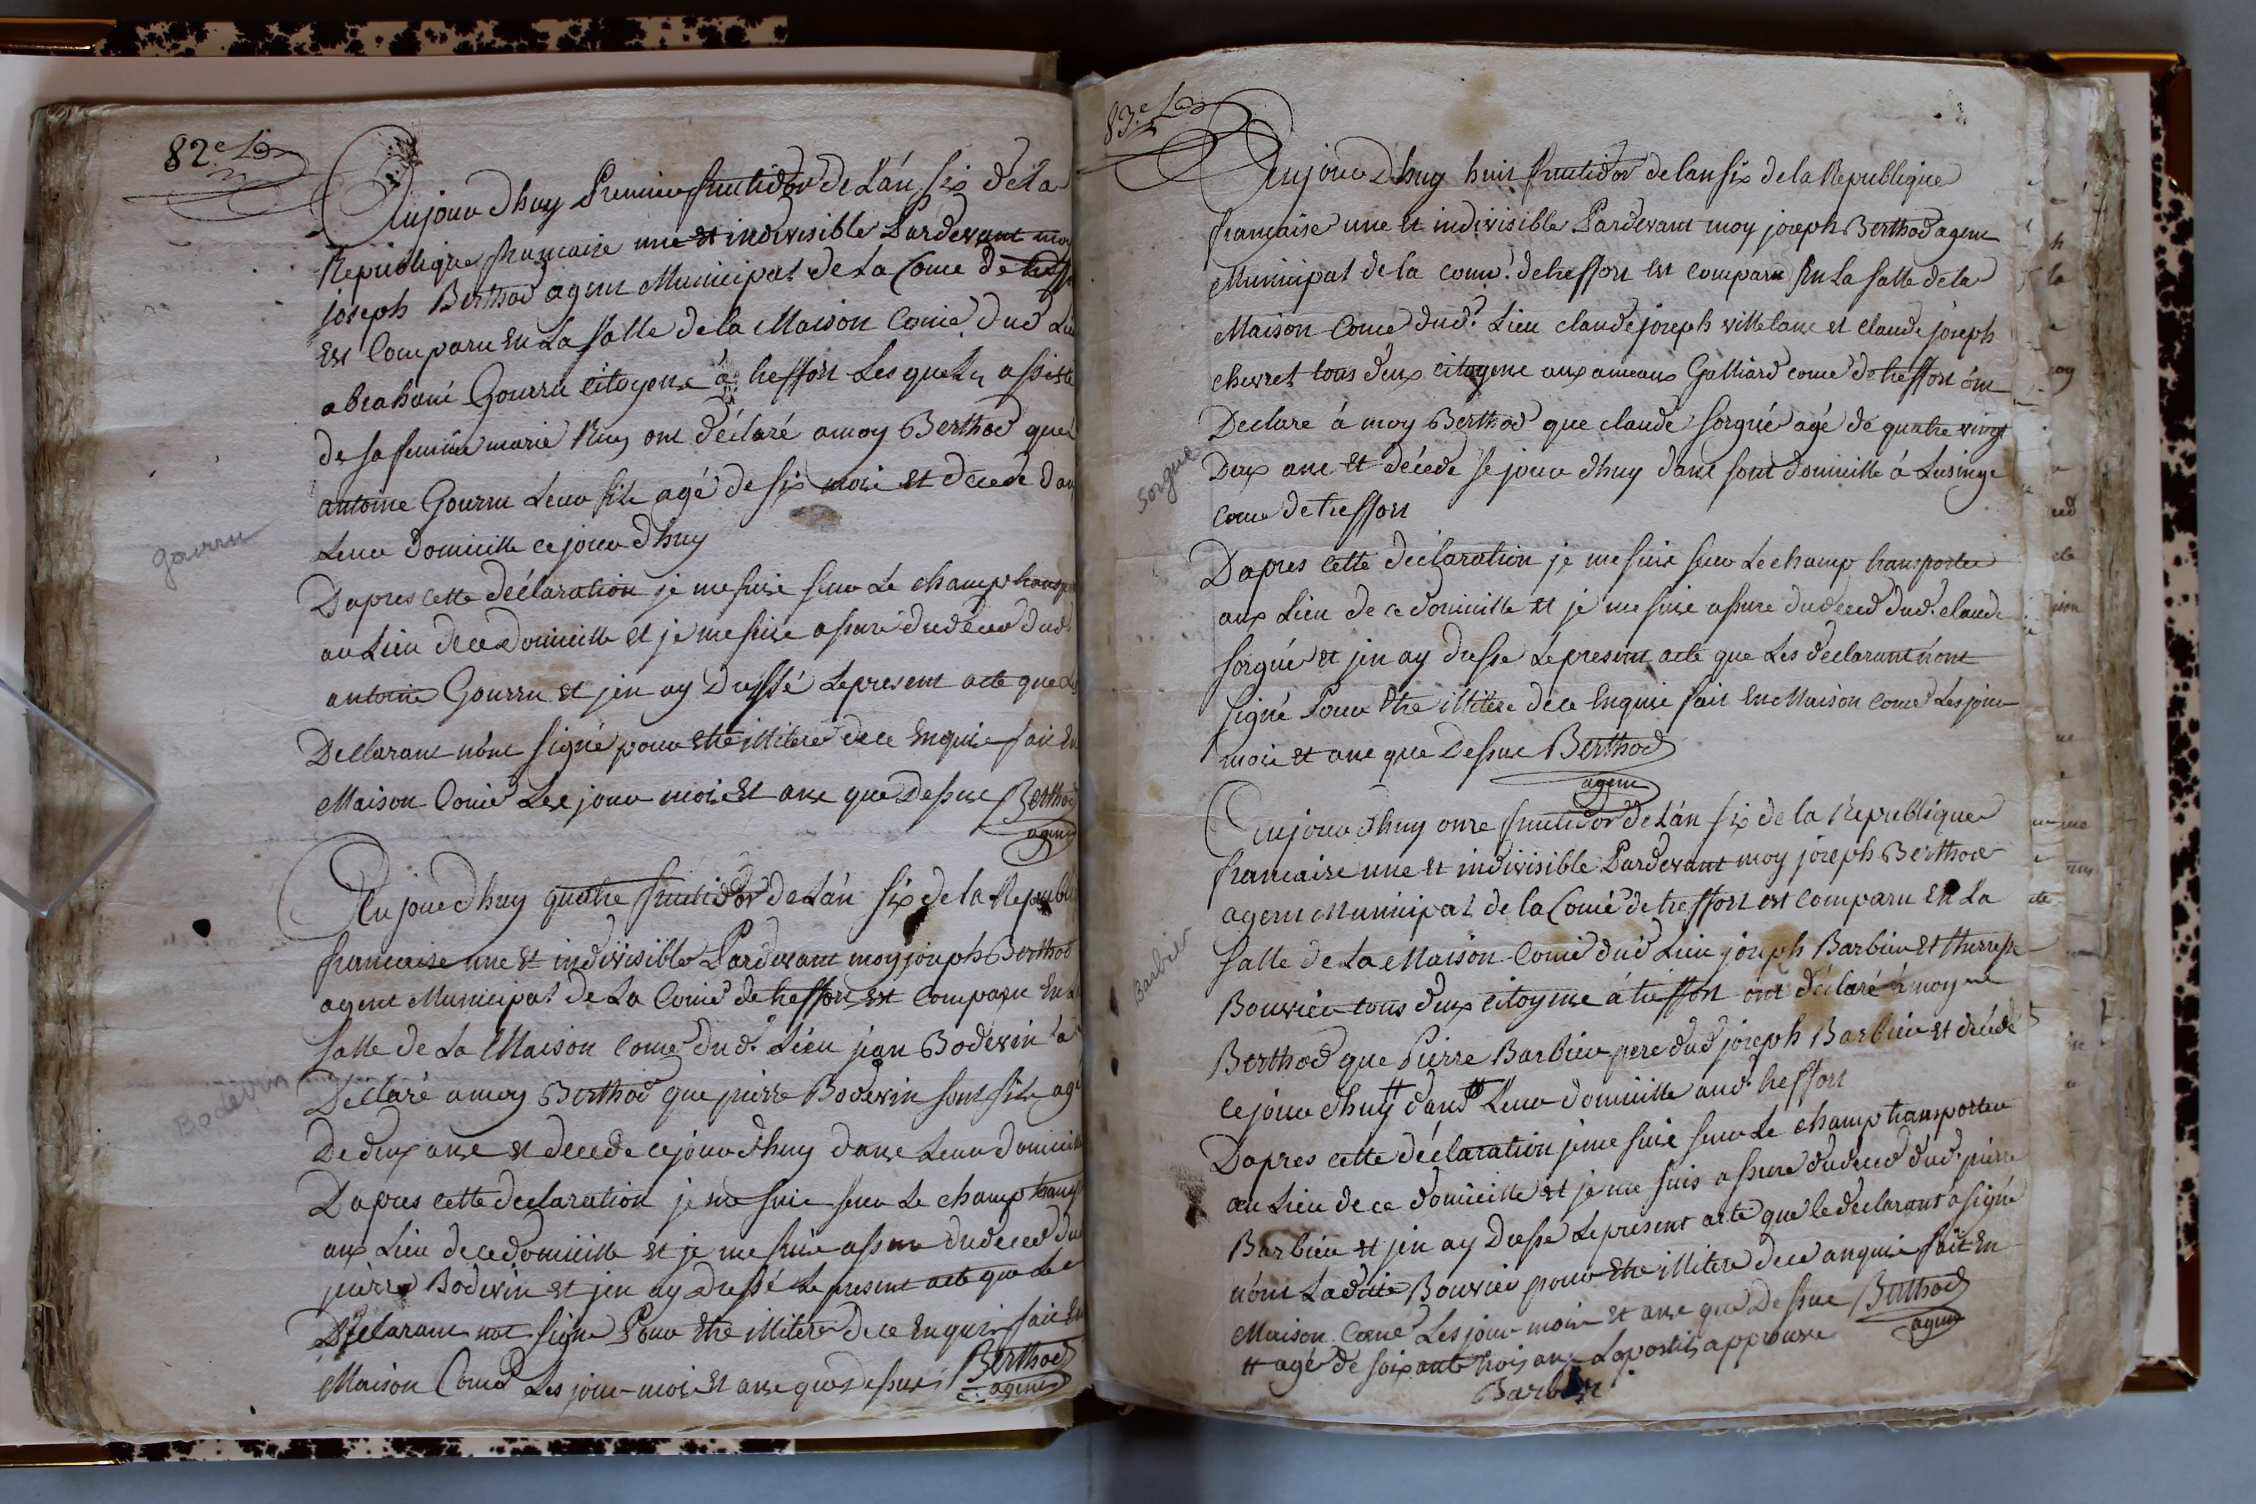 82.e
Aujour dhuy Premier fructidor de L'án six de la
Republique francaise une et indivisible Pardevant moy
joseph Berthod agent Municipal de La Come de treffort
Est Comparu En La salle de la Maison Come dud Lieu
abraham Gourru citoyens á treffort Lesquels assisté
de sa femme marie Ruy ont déclaré amoy Berthod que
Gourru
antoine Gourru Leur fils agé de six mois et décedé dans
Leur domicille ce jour dhuy
Dapres cette déclaration je me suis sur Le champ transporté
au Lieu de ce domicille et je me suis assuré du deced dud.
antoine Gourru et jen ay Dressé Le present acte que Les
Declarant nónt signé pour etre illiteré de ce Enquis fait En
Maison Come Les jour mois Et ans que Dessus Berthod
agent
Aujourdhuy quatre fructidor de L'án six de la Republique
francaise une et indivisible Pardevant moy joseph Berthod
agent Municipal de La Come de treffort est Comparu En La
salle de La Maison Come dud. Lieu jean Bodevin à
Bodevin
Déclaré amoy Berthod que pierre Bodevin sont fils agé
De deux ans et decedé ce jour dhuy dans Leur domicille
Dapres cette declaration je me suis sur Le champ transporté
aux Lieu de ce domicille et je me suis assure du deced dud
pierre Bodevin et jen ay dressé Le present acte que Le
Déclarant not signe Pour Etre illitere de ce Enquis fait En
Maison Come Les jour mois Et ans que dessus Berthod
agent
83.e
Aujour Dhuy huit fructidor de lan six de la Republique
francaise une et indivisible Pardevant moy joseph Berthod agent
Municipal de la come. de treffort est comparu En La salle de la
Maison Come dud. Lieu claude joseph villelane et claude joseph
chevret tous deux citoyens aux ameaux Galliard come de treffort ónt
Declare á moy Berthod que claude sorgué agé de quatre vingt
Sorgue
Deux ans et décede se jour dhuy dans sont domicille á Lusinge
Come de treffort
Dapres cette déclaration je me suis sur Le champ transporter
aux Lieu de ce domicille et je me suis assure du deced dud. claude
sorgué et jen ay dresse Le present acte que Les declarant nónt
signé Pour Etre illitere de ce Enquis fait En Maison Come Les jour
mois et ans que Dessus Berthod
agent
Aujour dhuy onze fructidor de L'án six de la Republique
francaise une et indivisible Pardevant moy joseph Berthod
agent Municipal de la Come de treffort est comparu En La
salle de La Maison Come dud Lieu joseph Barbier et therresse
Barbier
Bouvier tous deux citoyens á treffort ont déclaré á moy
Berthod que Pierre Barbier pere dud joseph Barbier et décédé
ce jour dhuy dans Leur domicille aud. treffort
Dapres cette déclaration je me suis sur Le champ transporter
au Lieu de ce domicille et je me suis assure du deced dud. pierre
Barbier et jen ay Dresse Le present acte que le declarant a signé
nónt Ladite Bouvier pour Etre illitere de ce anquis fait En
Maison Come Les jour mois et ans que Dessus Berthod
agent
# agé de soixante trois ans Lapostit approuvé
Barbier